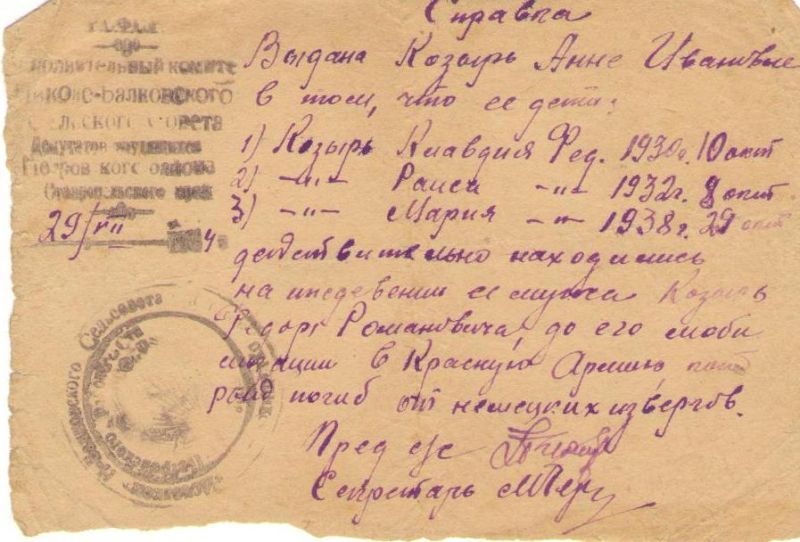 Справка
Р.С.Ф.С.Р.
Исполнительный комитет
-Балковского
Сельского Совета
Депутатов трудящихся
Петровского района
Ставропольского края
29/VII 194
Выдана Козырь Анне Ивановне
в том, что ее дети:
1) Козырь Клавдия Фед. 1930г. 10 окт
2) -„- Раиса -„- 1932г. 8 окт.
3) -„- Мария -„- 1938г. 29 окт
действительно находились
на иждевении ее мужа Козырь
Федора Романовича, до его моби
лизации в Красную Армию, кото
рый погиб от немецких извергов.
Пред с/с
Секретарь